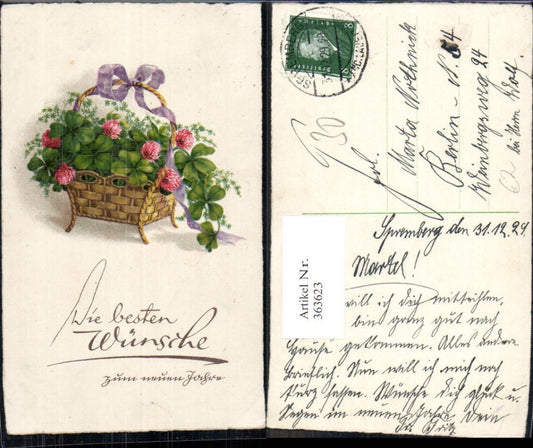 Die besten
Wünsche
zum neuen Jahre
SPREMBERG
8
Frl.
Marta
Berlin - N. 54
Weinbergsweg 24
bei
Artikel Nr.
363623
Spremberg den 31.12.29
Martel!
will ich dir mitteilen,
bin ganz gut nach
Hause gekommen. Alles andere
Nun will ich mich noch
kurz fassen. Wünsche dir Glück u.
Segen im neuen Jahre. Dein
Fritz